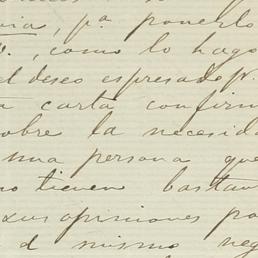 via, pª ponerlo
, como lo hago
el deseo espresado
a carta confirm
sobre la necesida
una persona que
no tienen bastan
sus opiniones po
el mismo neg